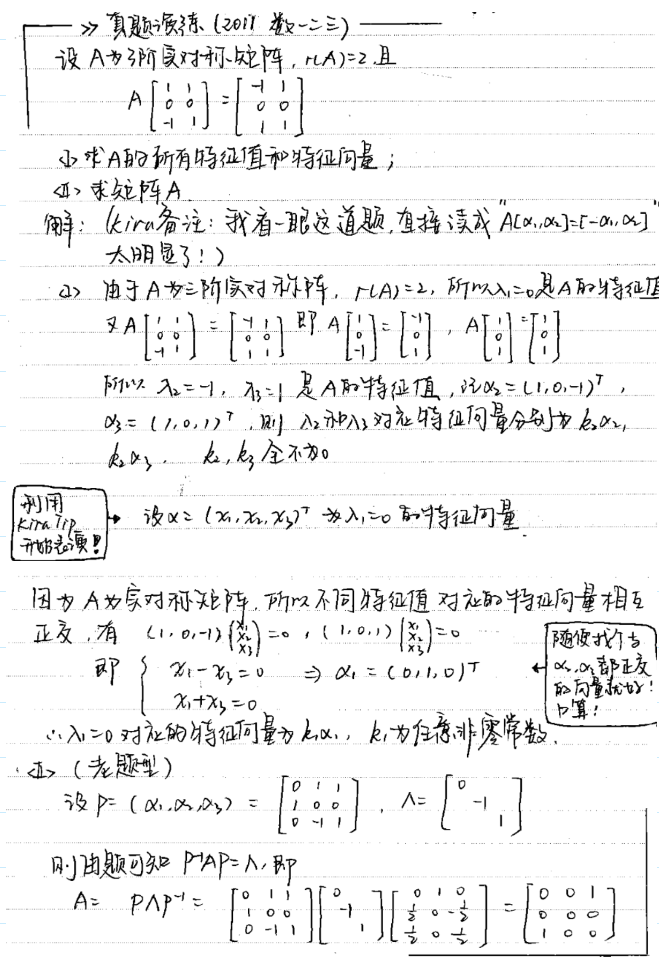 >> 真题演练(2011 数一二三)
设 A为3阶实对称矩阵, r(A)=2 且
A [1 1; 0 0; -1 1] = [-1 1; 0 0; 1 1]
<I> 求A的所有特征值和特征向量;
<II> 求矩阵A
解: (kira备注: 我看一眼这道题, 直接读成 "A[α₁,α₂]=[-α₁,α₂]"
太明显了!)
<I> 由于A为三阶实对称阵, r(A)=2, 所以λ₁=0是A的特征值
又A [1 1; 0 0; -1 1] = [-1 1; 0 0; 1 1] 即 A [1; 0; -1] = [-1; 0; 1], A [1; 0; 1] = [1; 0; 1]
所以 λ₂=-1, λ₃=1 是A的特征值, 记α₂=(1,0,-1)ᵀ,
α₃=(1,0,1)ᵀ, 则 λ₂和λ₃对应特征向量分别为 k₂α₂,
k₂α₃. k₂,k₃全不为0
利用
kira Tip
开始表演!
设α=(x₁,x₂,x₃)ᵀ 为λ₁=0的特征向量.
因为A为实对称矩阵, 所以不同特征值对应的特征向量相互
正交, 有 (1,0,-1) (x₁; x₂; x₃) =0, (1,0,1) (x₁; x₂; x₃) =0
即 { x₁-x₃=0 ⇒ α₁=(0,1,0)ᵀ
x₁+x₃=0
随便找个与
α₂,α₃都正交
的向量就好!
口算!
∴λ₁=0对应的特征向量为k₁α₁, k₁为任意非零常数.
<II> (老题型)
设 P=(α₁,α₂,α₃) = [0 1 1; 1 0 0; 0 -1 1], Λ= [0; -1; 1]
则由题可知 P⁻¹AP=Λ, 即
A= PΛP⁻¹ = [0 1 1; 1 0 0; 0 -1 1] [0; -1; 1] [0 1 0; ½ 0 -½; ½ 0 ½] = [0 0 1; 0 0 0; 1 0 0]